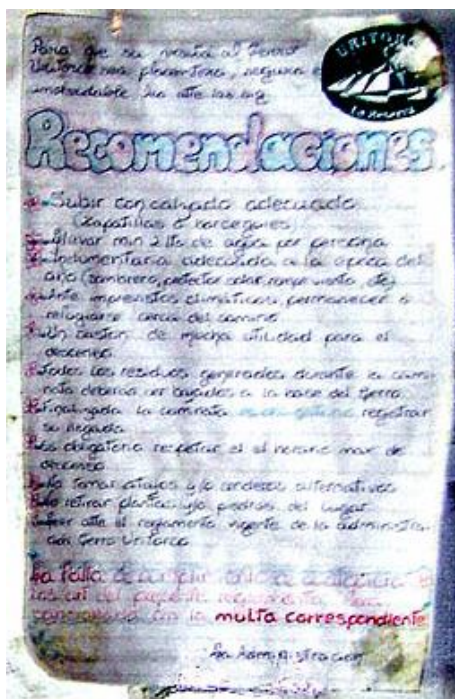 Para que su visita al Cerro
Uritorco sea placentera, segura e
inolvidable lea atte las sig
URITORCO
La Reserva
Recomendaciones
Subir con calzado adecuado
(zapatillas o borceguies)
Llevar min 2 lts de agua por persona
Indumentaria adecuada a la época del
año (sombrero, protector solar, rompe viento, etc)
Ante imprevistos climáticos, permanecer o
refugiarse cerca del camino
Un bastón de mucha utilidad para el
descenso
Todos los residuos generados durante la cami
nata deberas ser bajados a la base del Cerro
Finalizada la caminata es obligatorio registrar
su llegada
Es obligatorio respetar el el horario max de
descenso
No tomar atajos y/o senderos alternativos
No retirar plantas y/o piedras del lugar
Leer atte el reglamento vigente de la administra
ción Cerro Uritorco
La falta de cumplimiento de cualquiera de
los art del presente reglamento sera
sancionada con la multa correspondiente
La Administracion